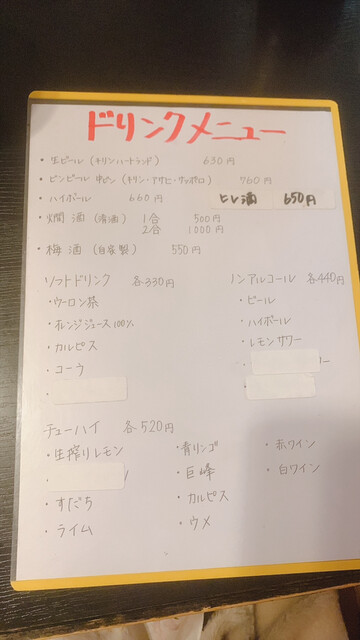 ドリンクメニュー
・生ビール (キリンハートランド) 630円
・ビンビール 中ビン (キリン・アサヒ・サッポロ) 760円
・ハイボール 660円 ヒレ酒 650円
・燗酒 (清酒) 1合 500円
2合 1000円
・梅酒 (自家製) 550円
ソフトドリンク 各330円
・ウーロン茶
・オレンジジュース100%
・カルピス
・コーラ
ノンアルコール 各440円
・ビール
・ハイボール
・レモンサワー
ー
チューハイ 各520円
・生搾りレモン
・すだち
・ライム
・青リンゴ
・巨峰
・カルピス
・ウメ
・赤ワイン
・白ワイン